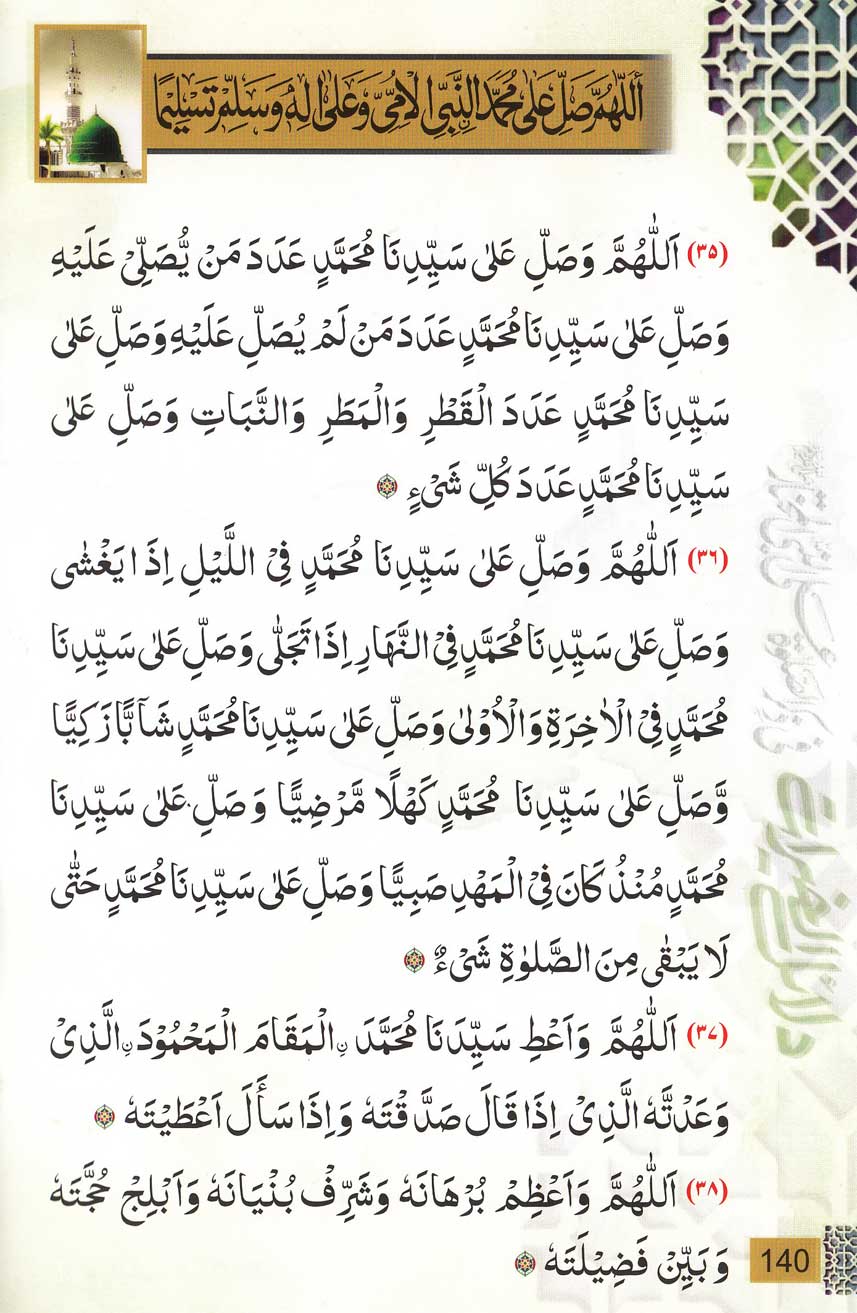 اَللّٰهُمَّ صَلِّ عَلٰى مُحَمَّدِ ۨالنَّبِيِّ الْاُمِّيِّ وَعَلٰى اٰلِهٖ وَسَلِّمْ تَسْلِيْمًا
(۳۵) اَللّٰهُمَّ وَصَلِّ عَلٰى سَيِّدِنَا مُحَمَّدٍ عَدَدَ مَنْ يُّصَلِّىْ عَلَيْهِ
وَصَلِّ عَلٰى سَيِّدِنَا مُحَمَّدٍ عَدَدَ مَنْ لَمْ يُصَلِّ عَلَيْهِ وَصَلِّ عَلٰى
سَيِّدِنَا مُحَمَّدٍ عَدَدَ الْقَطْرِ وَالْمَطَرِ وَالنَّبَاتِ وَصَلِّ عَلٰى
سَيِّدِنَا مُحَمَّدٍ عَدَدَ كُلِّ شَىْءٍ
(۳۶) اَللّٰهُمَّ وَصَلِّ عَلٰى سَيِّدِنَا مُحَمَّدٍ فِى اللَّيْلِ اِذَا يَغْشٰى
وَصَلِّ عَلٰى سَيِّدِنَا مُحَمَّدٍ فِى النَّهَارِ اِذَا تَجَلّٰى وَصَلِّ عَلٰى سَيِّدِنَا
مُحَمَّدٍ فِى الْاٰخِرَةِ وَالْاُوْلٰى وَصَلِّ عَلٰى سَيِّدِنَا مُحَمَّدٍ شَآبًّا زَكِيًّا
وَّصَلِّ عَلٰى سَيِّدِنَا مُحَمَّدٍ كَهْلًا مَّرْضِيًّا وَصَلِّ عَلٰى سَيِّدِنَا
مُحَمَّدٍ مُنْذُ كَانَ فِى الْمَهْدِ صَبِيًّا وَصَلِّ عَلٰى سَيِّدِنَا مُحَمَّدٍ حَتّٰى
لَا يَبْقٰى مِنَ الصَّلٰوةِ شَىْءٌ
(۳۷) اَللّٰهُمَّ وَاَعْطِ سَيِّدَنَا مُحَمَّدَ ۨالْمَقَامَ الْمَحْمُوْدَ ۨالَّذِىْ
وَعَدْتَّهُ الَّذِىْ اِذَا قَالَ صَدَّقْتَهٗ وَاِذَا سَأَلَ اَعْطَيْتَهٗ
(۳۸) اَللّٰهُمَّ وَاَعْظِمْ بُرْهَانَهٗ وَشَرِّفْ بُنْيَانَهٗ وَاَبْلِجْ حُجَّتَهٗ
وَبَيِّنْ فَضِيْلَتَهٗ
دلائل الخیرات
140